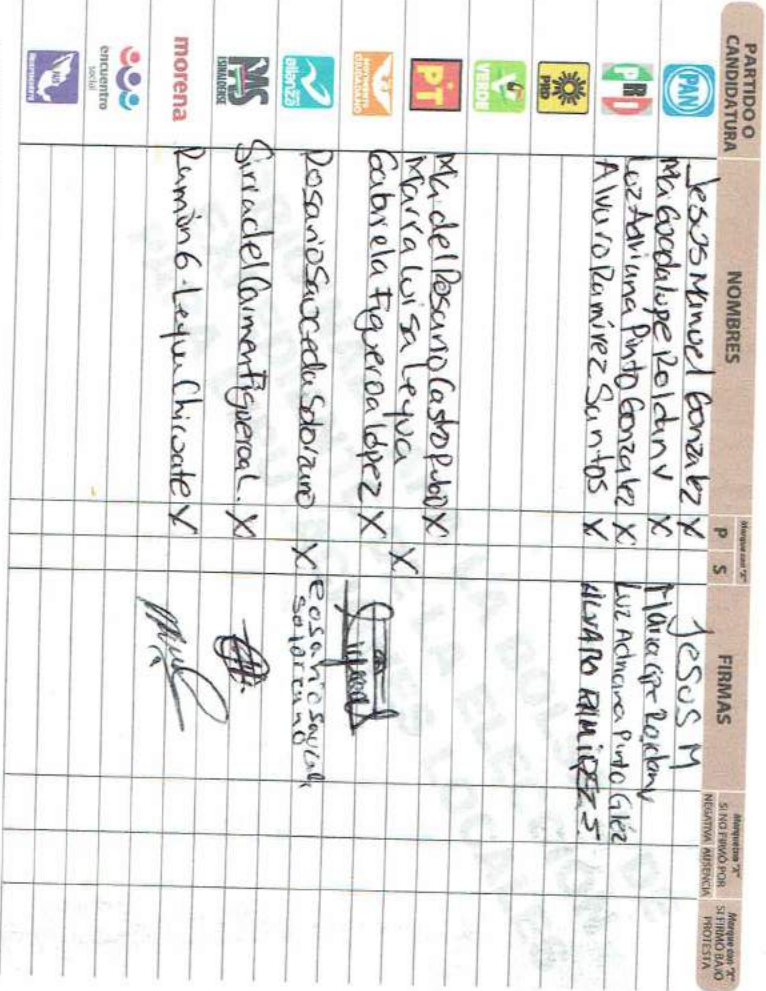 PARTIDO O CANDIDATURA
NOMBRES
Marque con "X"
P
S
FIRMAS
Marque con "X" SI NO FIRMÓ POR
NEGATIVA AUSENCIA
Marque con "X" SI FIRMÓ BAJO PROTESTA
PAN
Jesus Manuel Gonzalez X
JESUS M
Ma Guadalupe Roldan V X
PRI
Luz Adriana Pinto Gonzalez X
Luz Adriana Pinto Glez
Alvaro Ramirez Santos X
ALVARO RAMIREZ S
PRD
VERDE
PT
Ma. del Rosario Castro X
Maria Luisa Leyva X
MOVIMIENTO CIUDADANO
Gabriela Figueroa López X
alianza
Rosario Sauceda Solorzano X
Rosario Sauceda
MAS
SINALOENSE
del Carmen Figueroa L. X
morena
Ramón G. Leyva Chicuate X
encuentro social
PAIS